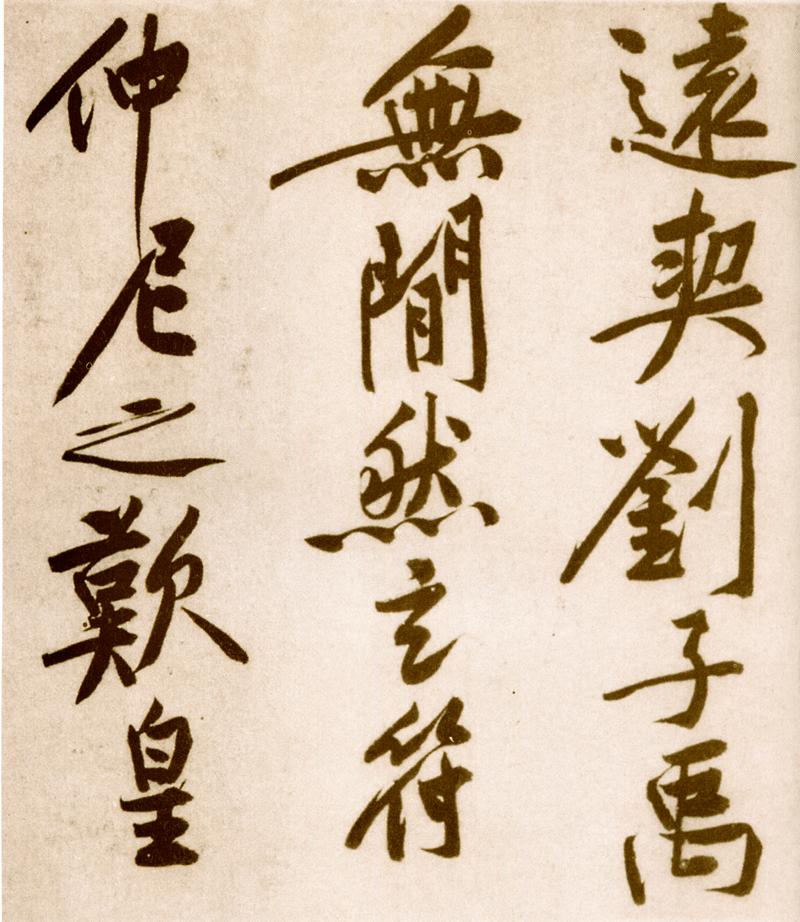 遠契劉子禹
無閒然玄符
仲尼之歎皇